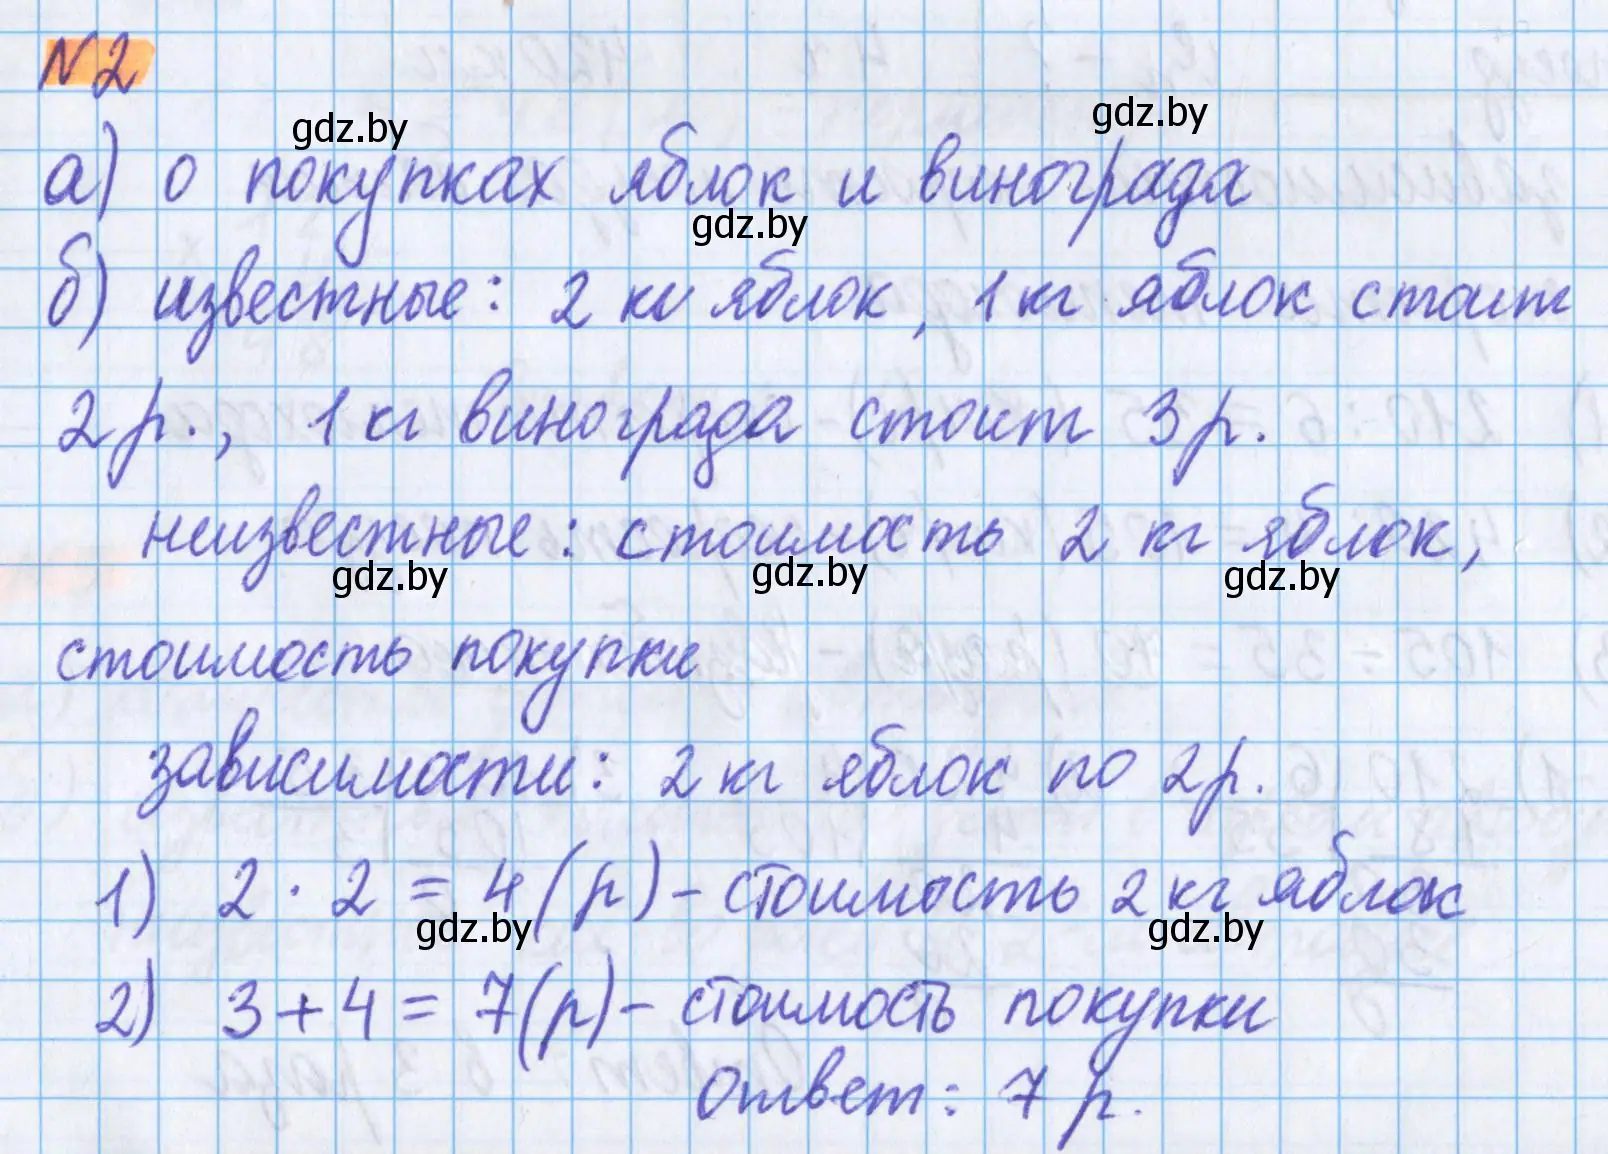 №2
gdz.by
gdz.by
а) о покупках яблок и винограда
gdz.by
б) известные: 2 кг яблок, 1 кг яблок стоит
2 р., 1 кг винограда стоит 3 р.
неизвестные: стоимость 2 кг яблок,
gdz.by
gdz.by
gdz.by
стоимость покупки
зависимости: 2 кг яблок по 2 р.
1) 2 · 2 = 4 (р) – стоимость 2 кг яблок
gdz.by
gdz.by
2) 3 + 4 = 7 (р) – стоимость покупки
Ответ: 7 р.